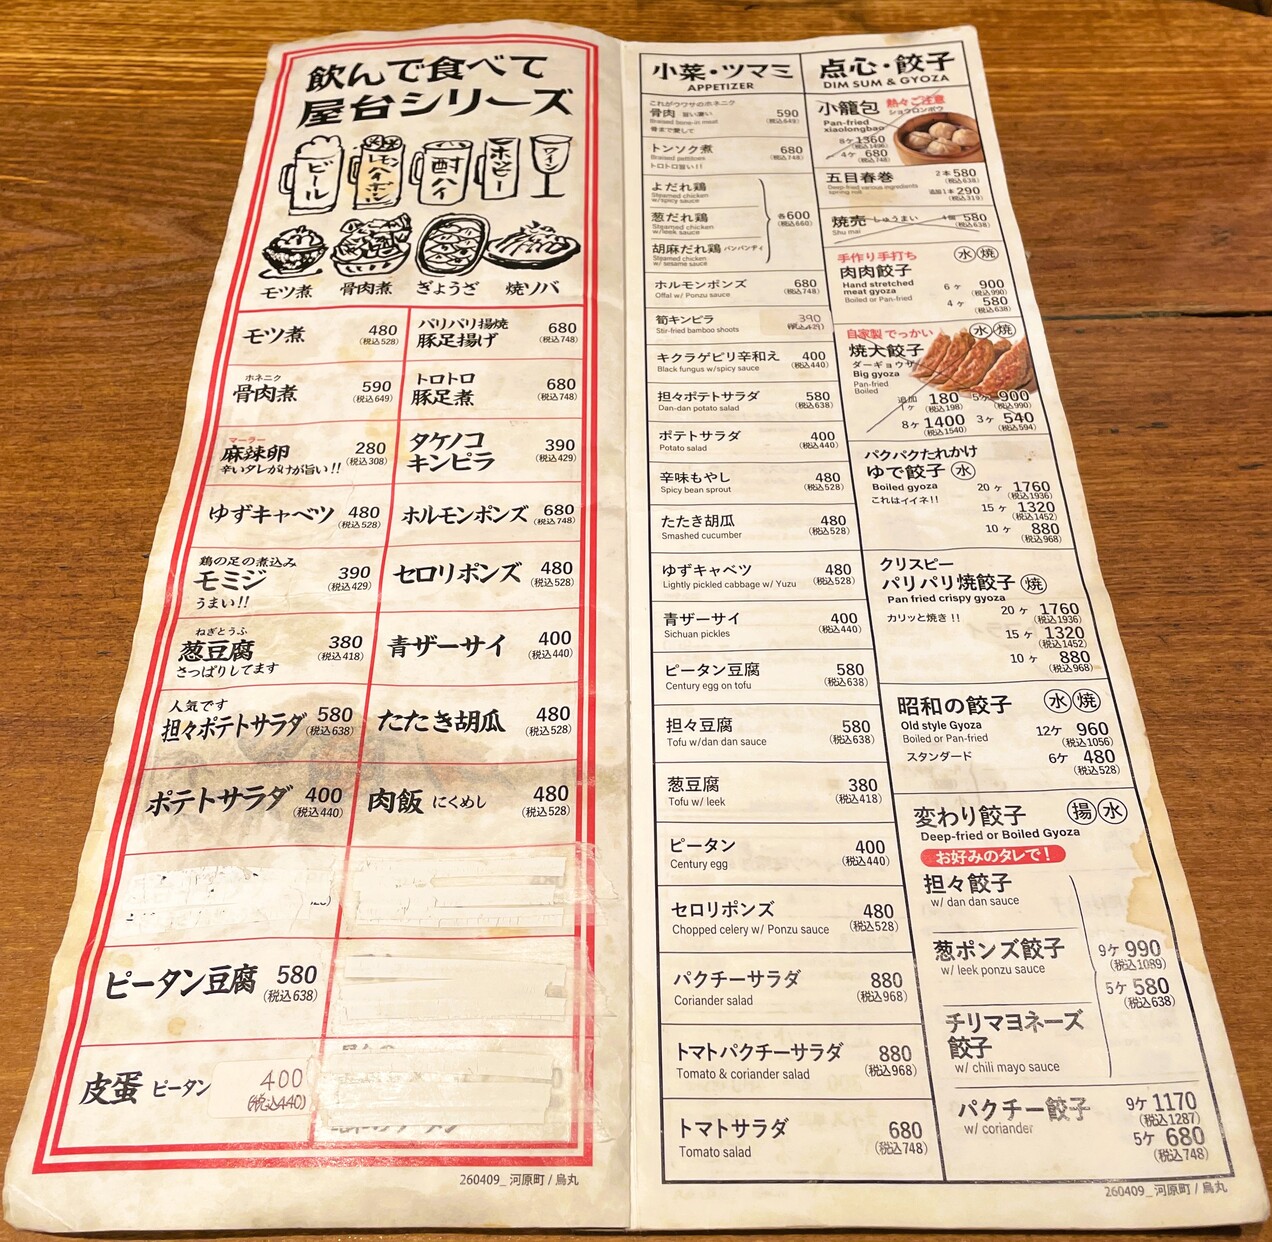 飲んで食べて
屋台シリーズ
ビール
レモンハイボール
酎ハイ
ホッピー
ワイン
モツ煮
骨肉煮
ぎょうざ
焼ソバ
モツ煮 480
(税込528)
バリバリ揚焼
豚足揚げ 680
(税込748)
ホネニク
骨肉煮 590
(税込649)
トロトロ
豚足煮 680
(税込748)
マーラー
麻辣卵 280
(税込308)
辛いタレがけが旨い!!
タケノコ
キンピラ 390
(税込429)
ゆずキャベツ 480
(税込528)
ホルモンポンズ 680
(税込748)
鶏の足の煮込み
モミジ 390
(税込429)
うまい!!
セロリポンズ 480
(税込528)
ねぎとうふ
葱豆腐 380
(税込418)
さっぱりしてます
青ザーサイ 400
(税込440)
人気です
担々ポテトサラダ 580
(税込638)
たたき胡瓜 480
(税込528)
ポテトサラダ 400
(税込440)
肉飯 にくめし 480
(税込528)
ピータン豆腐 580
(税込638)
皮蛋 ピータン 400
(税込440)
260409_河原町/烏丸
小菜・ツマミ
APPETIZER
これがウワサのホネニク
骨肉 旨い凄い 590
(税込649)
Braised bone-in meat
骨まで愛して
トンソク煮 680
(税込748)
Braised pettitoes
トロトロ旨い!!
よだれ鶏
Steamed chicken
w/spicy sauce
葱だれ鶏
Steamed chicken
w/leek sauce
各600
(税込660)
胡麻だれ鶏 バンバンディ
Steamed chicken
w/ sesame sauce
ホルモンポンズ 680
(税込748)
Offal w/ Ponzu sauce
筍キンピラ 390
(税込429)
Stir-fried bamboo shoots
キクラゲピリ辛和え 400
(税込440)
Black fungus w/spicy sauce
担々ポテトサラダ 580
(税込638)
Dan-dan potato salad
ポテトサラダ 400
(税込440)
Potato salad
辛味もやし 480
(税込528)
Spicy bean sprout
たたき胡瓜 480
(税込528)
Smashed cucumber
ゆずキャベツ 480
(税込528)
Lightly pickled cabbage w/ Yuzu
青ザーサイ 400
(税込440)
Sichuan pickles
ピータン豆腐 580
(税込638)
Century egg on tofu
担々豆腐 580
(税込638)
Tofu w/dan dan sauce
葱豆腐 380
(税込418)
Tofu w/ leek
ピータン 400
(税込440)
Century egg
セロリポンズ 480
(税込528)
Chopped celery w/ Ponzu sauce
パクチーサラダ 880
(税込968)
Coriander salad
トマトパクチーサラダ 880
(税込968)
Tomato & coriander salad
トマトサラダ 680
(税込748)
Tomato salad
点心・餃子
DIM SUM & GYOZA
小籠包 熱々ご注意
ショウロンポウ
Pan-fried
xiaolongbao
8ケ 1360
(税込1496)
4ケ 680
(税込748)
五目春巻 2本 580
(税込638)
Deep-fried various ingredients
spring roll
追加1本 290
(税込319)
焼売 しゅうまい 4個 580
(税込638)
Shu mai
手作り手打ち 水 焼
肉肉餃子
Hand stretched
meat gyoza
Boiled or Pan-fried
6ヶ 900
(税込990)
4ヶ 580
(税込638)
自家製 でっかい 水 焼
焼大餃子
ダーギョウザ
Big gyoza
Pan-fried
Boiled
追加1ヶ 180
(税込198)
5ヶ 900
(税込990)
8ヶ 1400
(税込1540)
3ヶ 540
(税込594)
パクパクたれかけ
ゆで餃子 水
Boiled gyoza
これはイイネ!!
20ヶ 1760
(税込1936)
15ヶ 1320
(税込1452)
10ヶ 880
(税込968)
クリスピー
パリパリ焼餃子 焼
Pan fried crispy gyoza
カリッと焼き!!
20ヶ 1760
(税込1936)
15ヶ 1320
(税込1452)
10ヶ 880
(税込968)
昭和の餃子 水 焼
Old style Gyoza
Boiled or Pan-fried
スタンダード
12ケ 960
(税込1056)
6ケ 480
(税込528)
変わり餃子 揚 水
Deep-fried or Boiled Gyoza
お好みのタレで!
担々餃子
w/ dan dan sauce
葱ポンズ餃子
w/ leek ponzu sauce
9ケ 990
(税込1089)
5ケ 580
(税込638)
チリマヨネーズ
餃子
w/ chili mayo sauce
パクチー餃子
w/ coriander
9ケ 1170
(税込1287)
5ケ 680
(税込748)
260409_河原町/烏丸